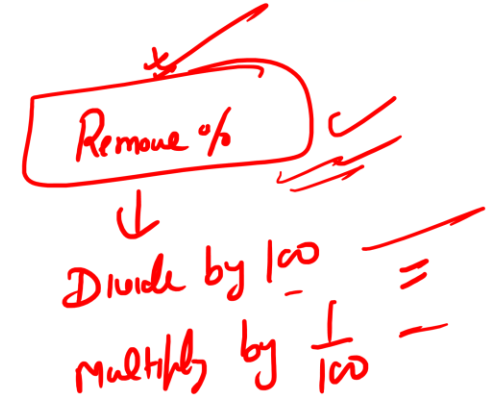 Remove %
Divide by 100
Multiply by 1/100